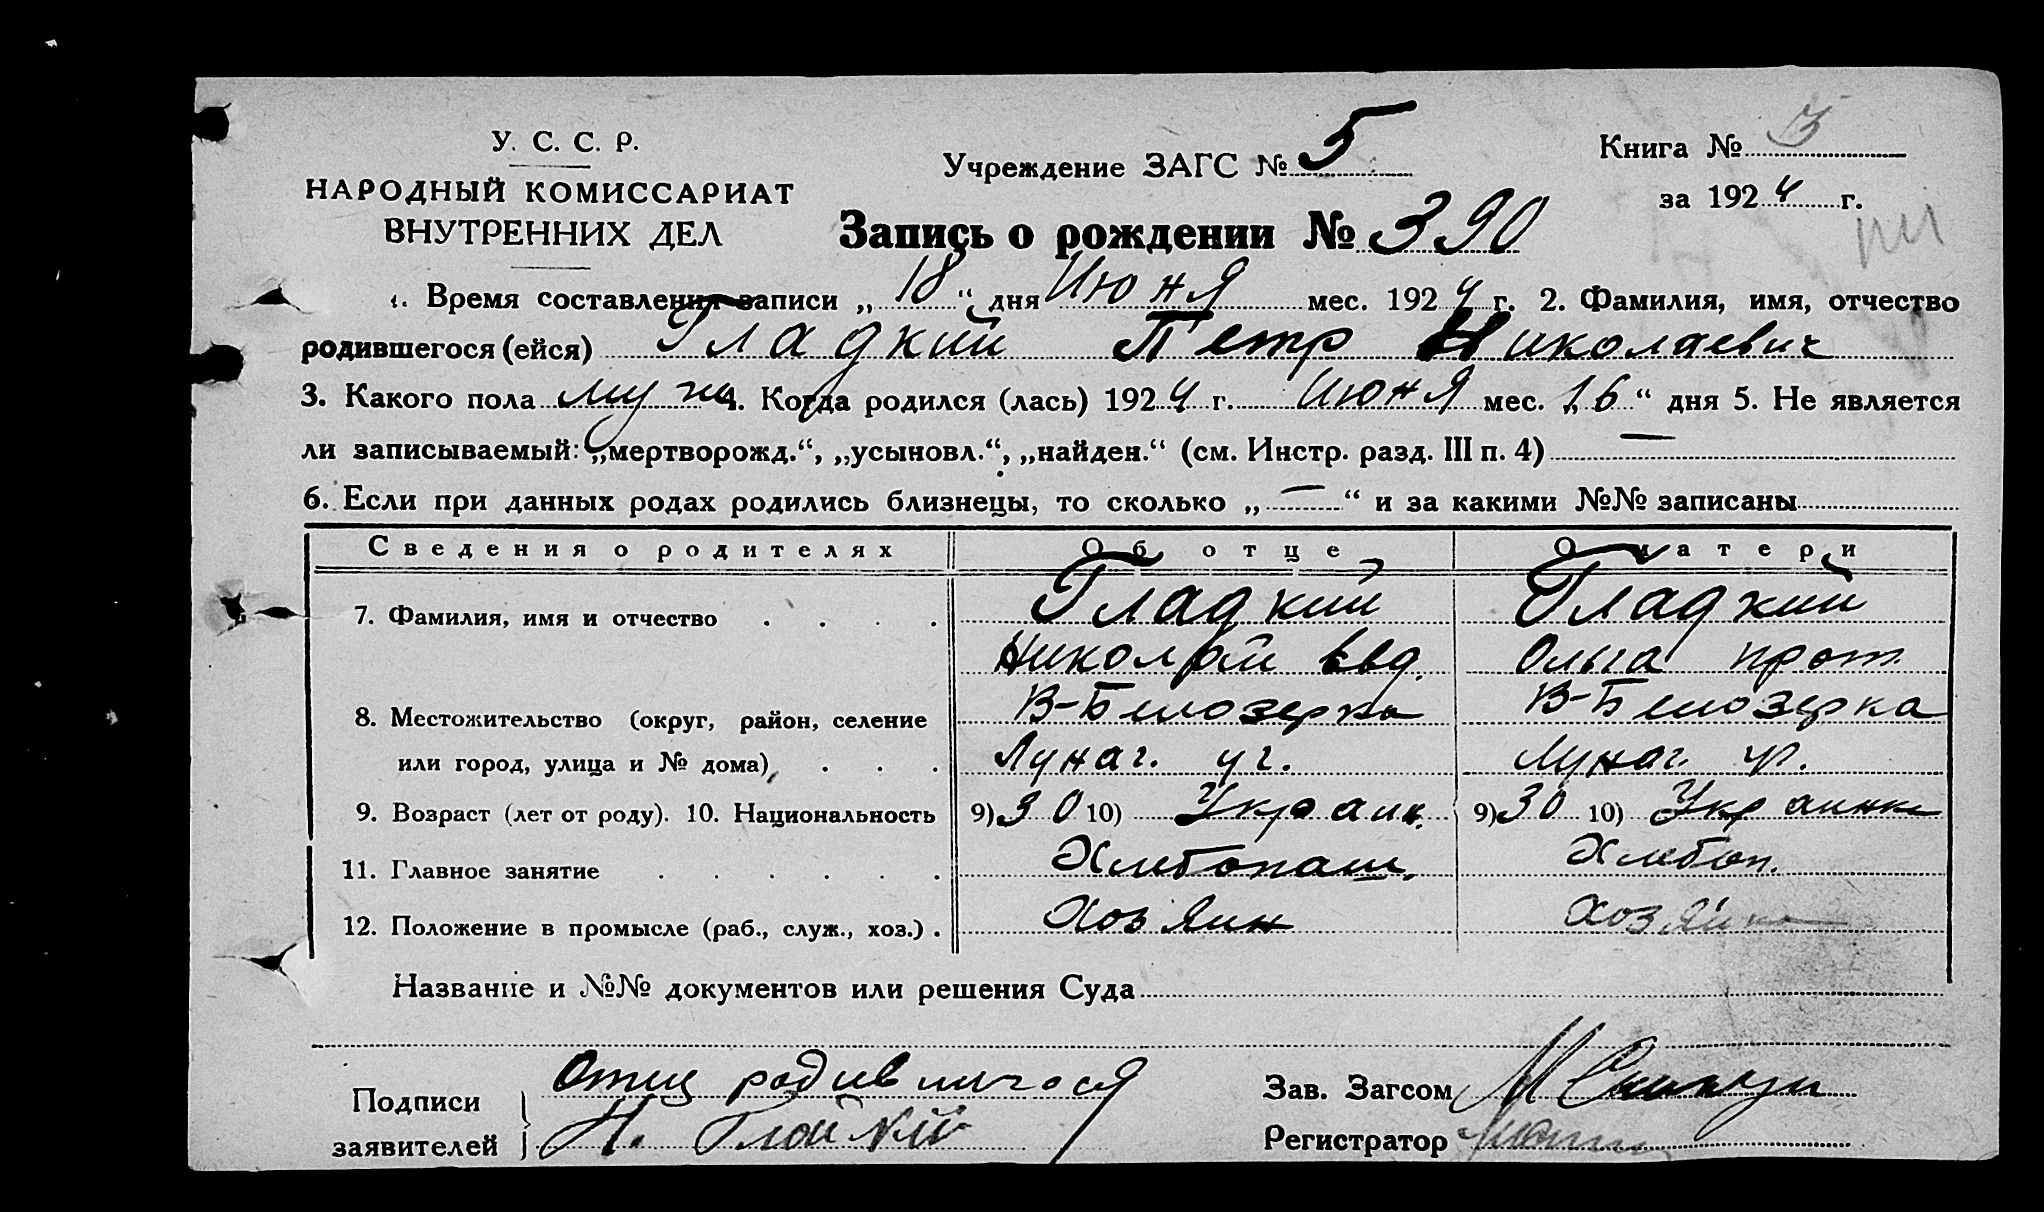 У. С. С. Р.
НАРОДНЫЙ КОМИССАРИАТ
ВНУТРЕННИХ ДЕЛ
Учреждение ЗАГС № 5
Книга №
за 1924 г.
Запись о рождении № 390
1. Время составления записи „18“ дня Июня мес. 1924 г. 2. Фамилия, имя, отчество
родившегося (ейся) Гладкий Петр Николаевич
3. Какого пола муж 4. Когда родился (лась) 1924 г. Июня мес. „16“ дня 5. Не является
ли записываемый: „мертворожд.“, „усыновл.“, „найден.“ (см. Инстр. разд. III п. 4) —
6. Если при данных родах родились близнецы, то сколько „—“ и за какими №№ записаны
Сведения о родителях Об отце О матери
7. Фамилия, имя и отчество Гладкий Гладкий
Николай Евд. Ольга прот.
8. Местожительство (округ, район, селение В-Белозерка В-Белозерка
или город, улица и № дома)
9. Возраст (лет от роду). 10. Национальность 9) 30 10) Украин. 9) 30 10) Украинка
11. Главное занятие Хлебопаш. Хлебоп.
12. Положение в промысле (раб., служ., хоз.) Хозяин Хозяйка
Название и №№ документов или решения Суда
Подписи
заявителей
Отец родившегося
Н. Гладкий
Зав. Загсом
Регистратор